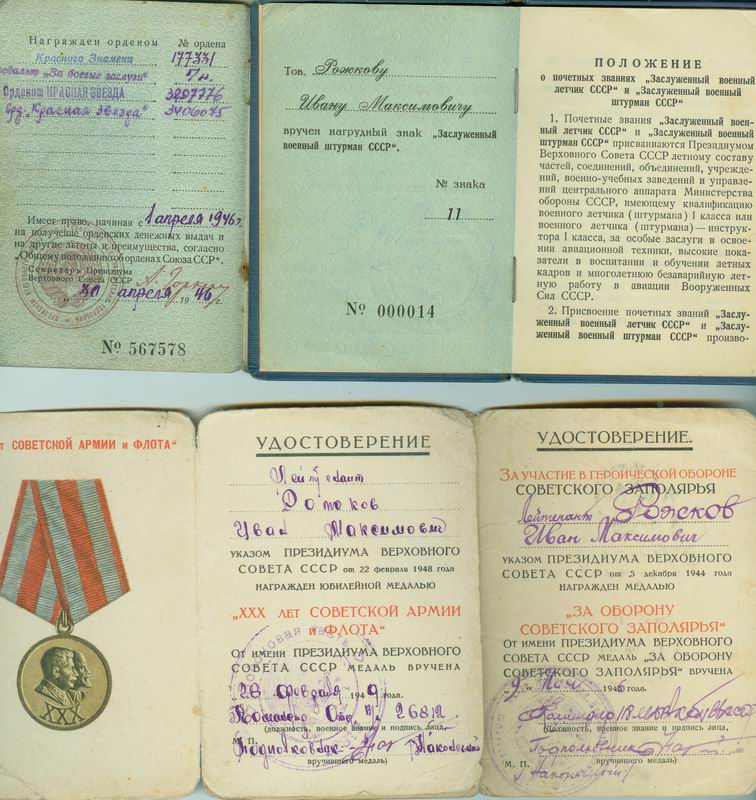 Награжден орденом № ордена
Красного Знамени 177331
медалью „За боевые заслуги" б/н.
Орденом КРАСНАЯ ЗВЕЗДА 3207776
Орд. „Красная Звезда" 3406075
Имеет право, начиная с 1 апреля 1946 г.
на получение орденских денежных выдач и
на другие льготы и преимущества, согласно
„Общему положению об орденах Союза ССР".
Секретарь Президиума
Верховного Совета СССР А. Горкин
„30" апреля 1946 г.
№ 567578
Тов. Рожкову
Ивану Максимовичу
вручен нагрудный знак „Заслуженный
военный штурман СССР".
№ знака
11
№ 000014
ПОЛОЖЕНИЕ
о почетных званиях „Заслуженный военный
летчик СССР" и „Заслуженный военный
штурман СССР"
1. Почетные звания „Заслуженный воен-
ный летчик СССР" и „Заслуженный военный
штурман СССР" присваиваются Президиумом
Верховного Совета СССР летному составу
частей, соединений, объединений, учрежде-
ний, военно-учебных заведений и управле-
ний центрального аппарата Министерства
обороны СССР, имеющему квалификацию
военного летчика (штурмана) I класса или
военного летчика (штурмана)—инструк-
тора I класса, за особые заслуги в освое-
нии авиационной техники, высокие показа-
тели в воспитании и обучении летных
кадров и многолетнюю безаварийную лет-
ную работу в авиации Вооруженных
Сил СССР.
2. Присвоение почетных званий „Заслу-
женный военный летчик СССР" и „Заслу-
женный военный штурман СССР" произво-
т СОВЕТСКОЙ АРМИИ и ФЛОТА"
XXX
УДОСТОВЕРЕНИЕ
Лейтенант
Рожков
Иван Максимович
УКАЗОМ ПРЕЗИДИУМА ВЕРХОВНОГО
СОВЕТА СССР от 22 февраля 1948 года
НАГРАЖДЕН ЮБИЛЕЙНОЙ МЕДАЛЬЮ
„XXX ЛЕТ СОВЕТСКОЙ АРМИИ
и ФЛОТА"
От имени ПРЕЗИДИУМА ВЕРХОВНОГО
СОВЕТА СССР МЕДАЛЬ ВРУЧЕНА
„28" февраля 1949 года.
26812
(должность, военное звание и подпись лица,
М. П. вручившего медаль)
Подполковник
УДОСТОВЕРЕНИЕ.
ЗА УЧАСТИЕ В ГЕРОИЧЕСКОЙ ОБОРОНЕ
СОВЕТСКОГО ЗАПОЛЯРЬЯ
Лейтенант Рожков
Иван Максимович
УКАЗОМ ПРЕЗИДИУМА ВЕРХОВНОГО
СОВЕТА СССР от 5 декабря 1944 года
НАГРАЖДЕН МЕДАЛЬЮ
„ЗА ОБОРОНУ
СОВЕТСКОГО ЗАПОЛЯРЬЯ"
От имени ПРЕЗИДИУМА ВЕРХОВНОГО
СОВЕТА СССР МЕДАЛЬ „ЗА ОБОРОНУ
СОВЕТСКОГО ЗАПОЛЯРЬЯ" ВРУЧЕНА
„9" 1946 года.
Командир
(Должность, военное звание и подпись лица,
Подполковник
М. П. вручившего медаль)